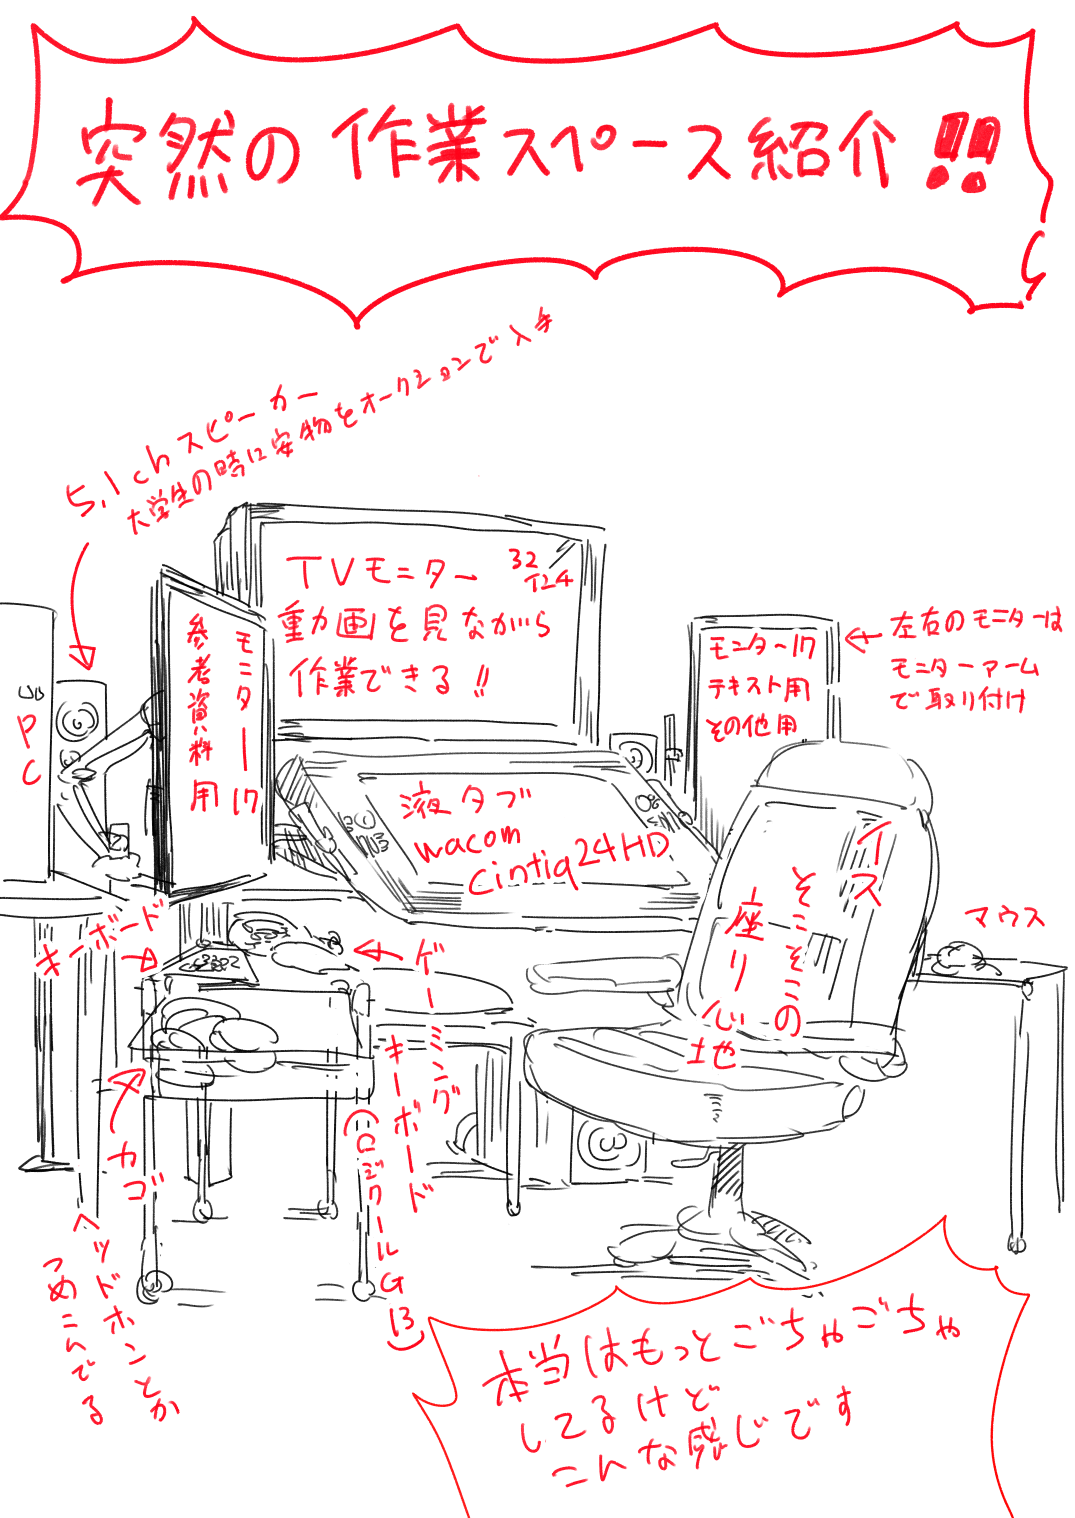 突然の作業スペース紹介!!
5.1chスピーカー
大学生の時に安物をオークションで入手
TVモニター 32インチ
動画を見ながら
作業できる!!
モニター17
参考資料用
PC
モニター17
テキスト用
その他用
左右のモニターは
モニターアーム
で取り付け
液タブ
wacom
cintiq24HD
イス
そこそこの
座り心地
マウス
キーボード
ゲーミング
キーボード
(ロジクールG13)
カゴ
ヘッドホンとか
つめこんでる
本当はもっとごちゃごちゃ
してるけど
こんな感じです